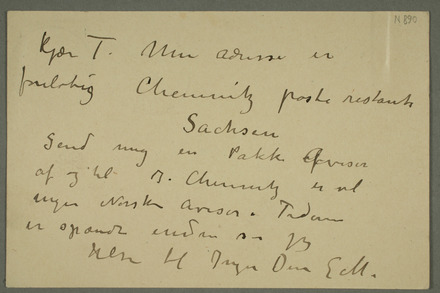 N 890
Kjær T. Min adresse er
foreløbig Chemnitz poste restante
Sachsen
Send mig en Pakke Aviser
af og til I Chemnitz er vel
ingen Norske aviser. Tiderne
er spændt endnu
Hilsen Din E.M.